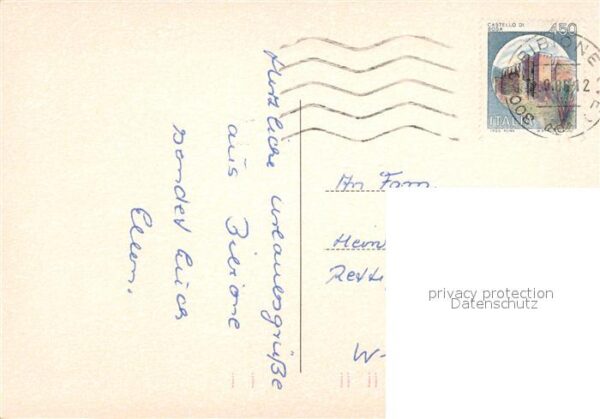 CASTELLO DI
BOSA
450
BIBIONE
ITALIA
Herzliche Urlaubsgrüße
aus Bibione
sendet Euch
Ellen.
An Fam.
Hein
W-
privacy protection
Datenschutz